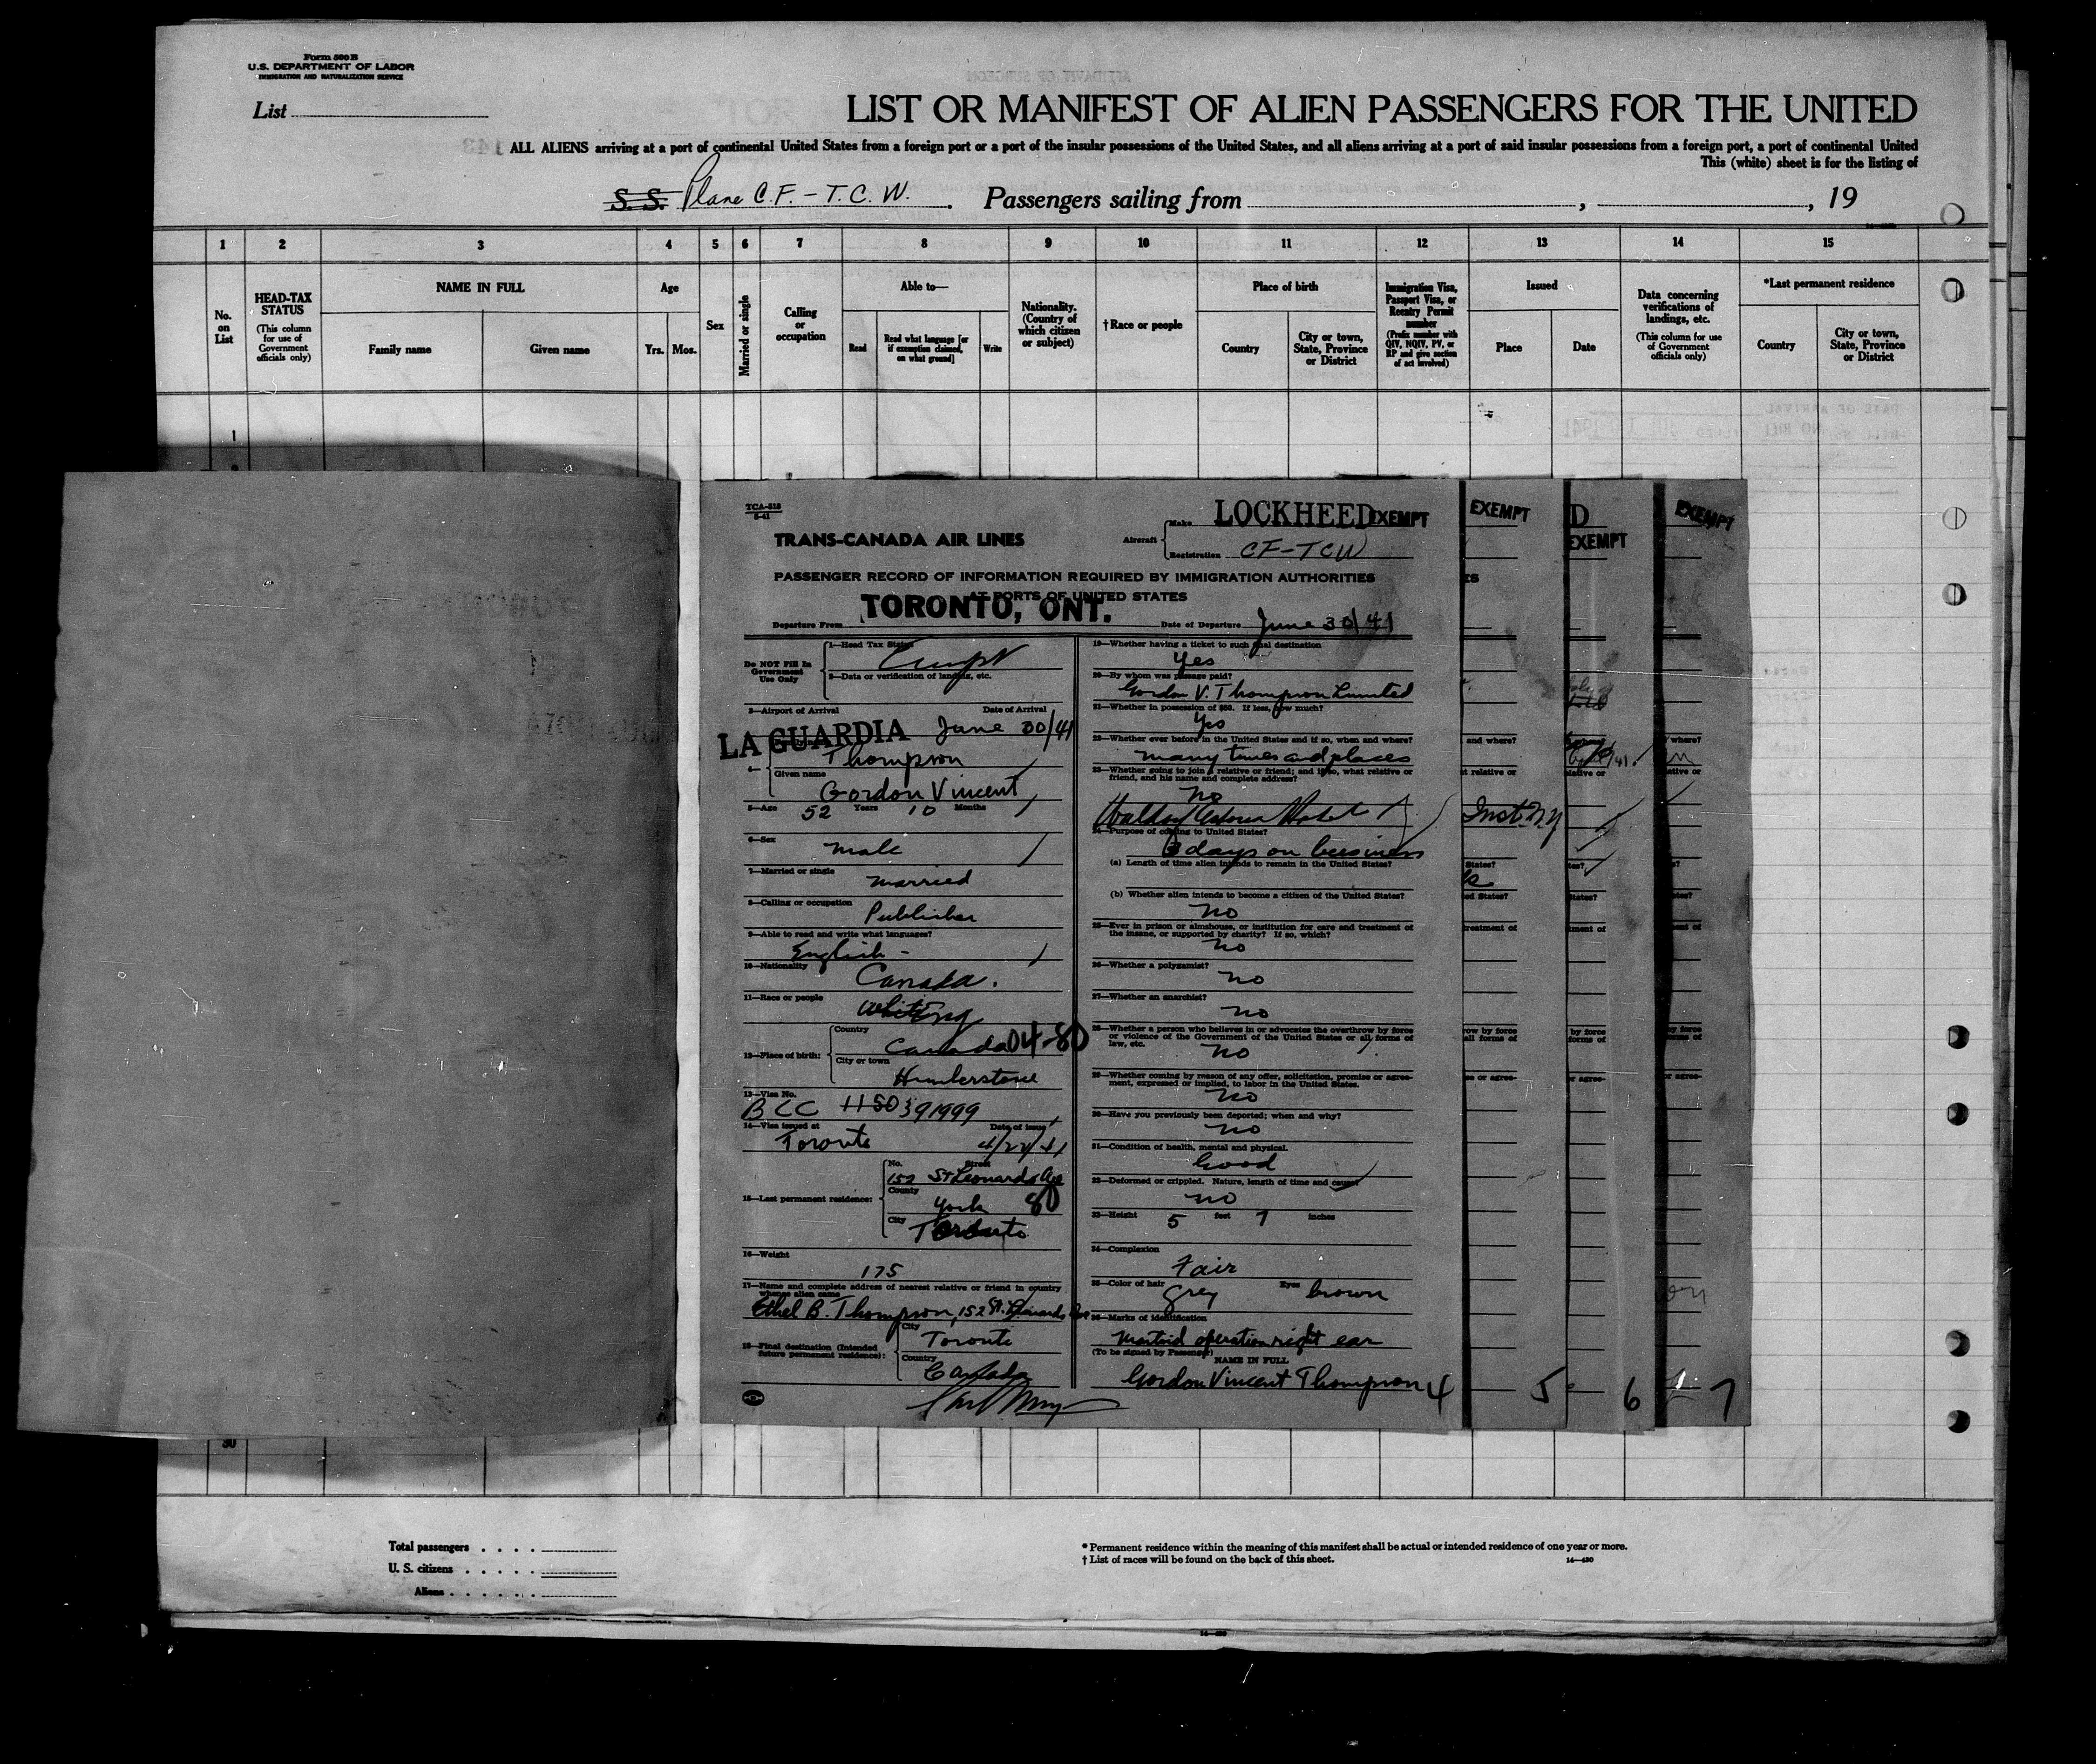 Form 500 B
U.S. DEPARTMENT OF LABOR
IMMIGRATION AND NATURALIZATION SERVICE
List
LIST OR MANIFEST OF ALIEN PASSENGERS FOR THE UNITED
ALL ALIENS arriving at a port of continental United States from a foreign port or a port of the insular possessions of the United States, and all aliens arriving at a port of said insular possessions from a foreign port, a port of continental United
This (white) sheet is for the listing of
S. S. Plane C.F. - T. C. W. Passengers sailing from , , 19
1 2 3 4 5 6 7 8 9 10 11 12 13 14 15
No. on List
HEAD-TAX STATUS
(This column for use of Government officials only)
NAME IN FULL
Family name Given name
Age
Yrs. Mos.
Sex
Married or single
Calling or occupation
Able to—
Read
Read what language [or if exemption claimed, on what ground]
Write
Nationality. (Country of which citizen or subject)
†Race or people
Place of birth
Country
City or town, State, Province or District
Immigration Visa, Passport Visa, or Reentry Permit number
(Prefix number with QIV, NQIV, PV, or RP and give section of act involved)
Issued
Place Date
Data concerning verifications of landings, etc.
(This column for use of Government officials only)
*Last permanent residence
Country
City or town, State, Province or District
1
TCA-818
5-41
TRANS-CANADA AIR LINES
Aircraft
Make LOCKHEED EXEMPT
Registration CF-TCW
PASSENGER RECORD OF INFORMATION REQUIRED BY IMMIGRATION AUTHORITIES
AT PORTS OF UNITED STATES
Departure From TORONTO, ONT. Date of Departure June 30/41
Do NOT Fill In Government Use Only
1—Head Tax Status
2—Data or verification of landing, etc.
3—Airport of Arrival Date of Arrival
LA GUARDIA June 30/41
4—
Thompson
Given name
Gordon Vincent
5—Age 52 Years 10 Months
6—Sex
male
7—Married or single
married
8—Calling or occupation
Publisher
9—Able to read and write what languages?
English -
10—Nationality
Canada.
11—Race or people
White Eng
12—Place of birth:
Country
Canada 04-80
City or town
Humberstone
13—Visa No.
BCC 1150 391999
14—Visa issued at Date of issue
Toronto 4/22/41
15—Last permanent residence:
No. Street
152 St Leonards Ave
County
York 80
City
Toronto
16—Weight
175
17—Name and complete address of nearest relative or friend in country whence alien came
Ethel B. Thompson, 152 St. Leonards Ave
18—Final destination (Intended future permanent residence):
City
Toronto
Country
Canada
19—Whether having a ticket to such final destination
Yes
20—By whom was passage paid?
Gordon V. Thompson Limited
21—Whether in possession of $50. If less, how much?
Yes
22—Whether ever before in the United States and if so, when and where?
many times and places
23—Whether going to join a relative or friend; and if so, what relative or
friend, and his name and complete address?
no
Waldorf Astoria Hotel
24—Purpose of coming to United States?
3 days on business
(a) Length of time alien intends to remain in the United States?
(b) Whether alien intends to become a citizen of the United States?
no
25—Ever in prison or almshouse, or institution for care and treatment of
the insane, or supported by charity? If so, which?
no
26—Whether a polygamist?
no
27—Whether an anarchist?
no
28—Whether a person who believes in or advocates the overthrow by force
or violence of the Government of the United States or all forms of
law, etc.
no
29—Whether coming by reason of any offer, solicitation, promise or agree-
ment, expressed or implied, to labor in the United States.
no
30—Have you previously been deported; when and why?
no
31—Condition of health, mental and physical.
Good
32—Deformed or crippled. Nature, length of time and cause?
no
33—Height 5 feet 7 inches
34—Complexion
Fair
35—Color of hair Eyes
Grey brown
36—Marks of identification
Mastoid operation right ear
(To be signed by Passenger)
NAME IN FULL
Gordon Vincent Thompson 4
EXEMPT
ES
and where?
t relative or
States?
ed States?
treatment of
row by force
all forms of
se or agree-
5
D
EXEMPT
lative or
tes?
States?
tment of
by force
forms of
or agree-
6
EXEMPT
where?
ative or
s?
tes?
ent of
by force
orms of
r agree-
7
30
Total passengers
U. S. citizens
Aliens
* Permanent residence within the meaning of this manifest shall be actual or intended residence of one year or more.
† List of races will be found on the back of this sheet.
14—430